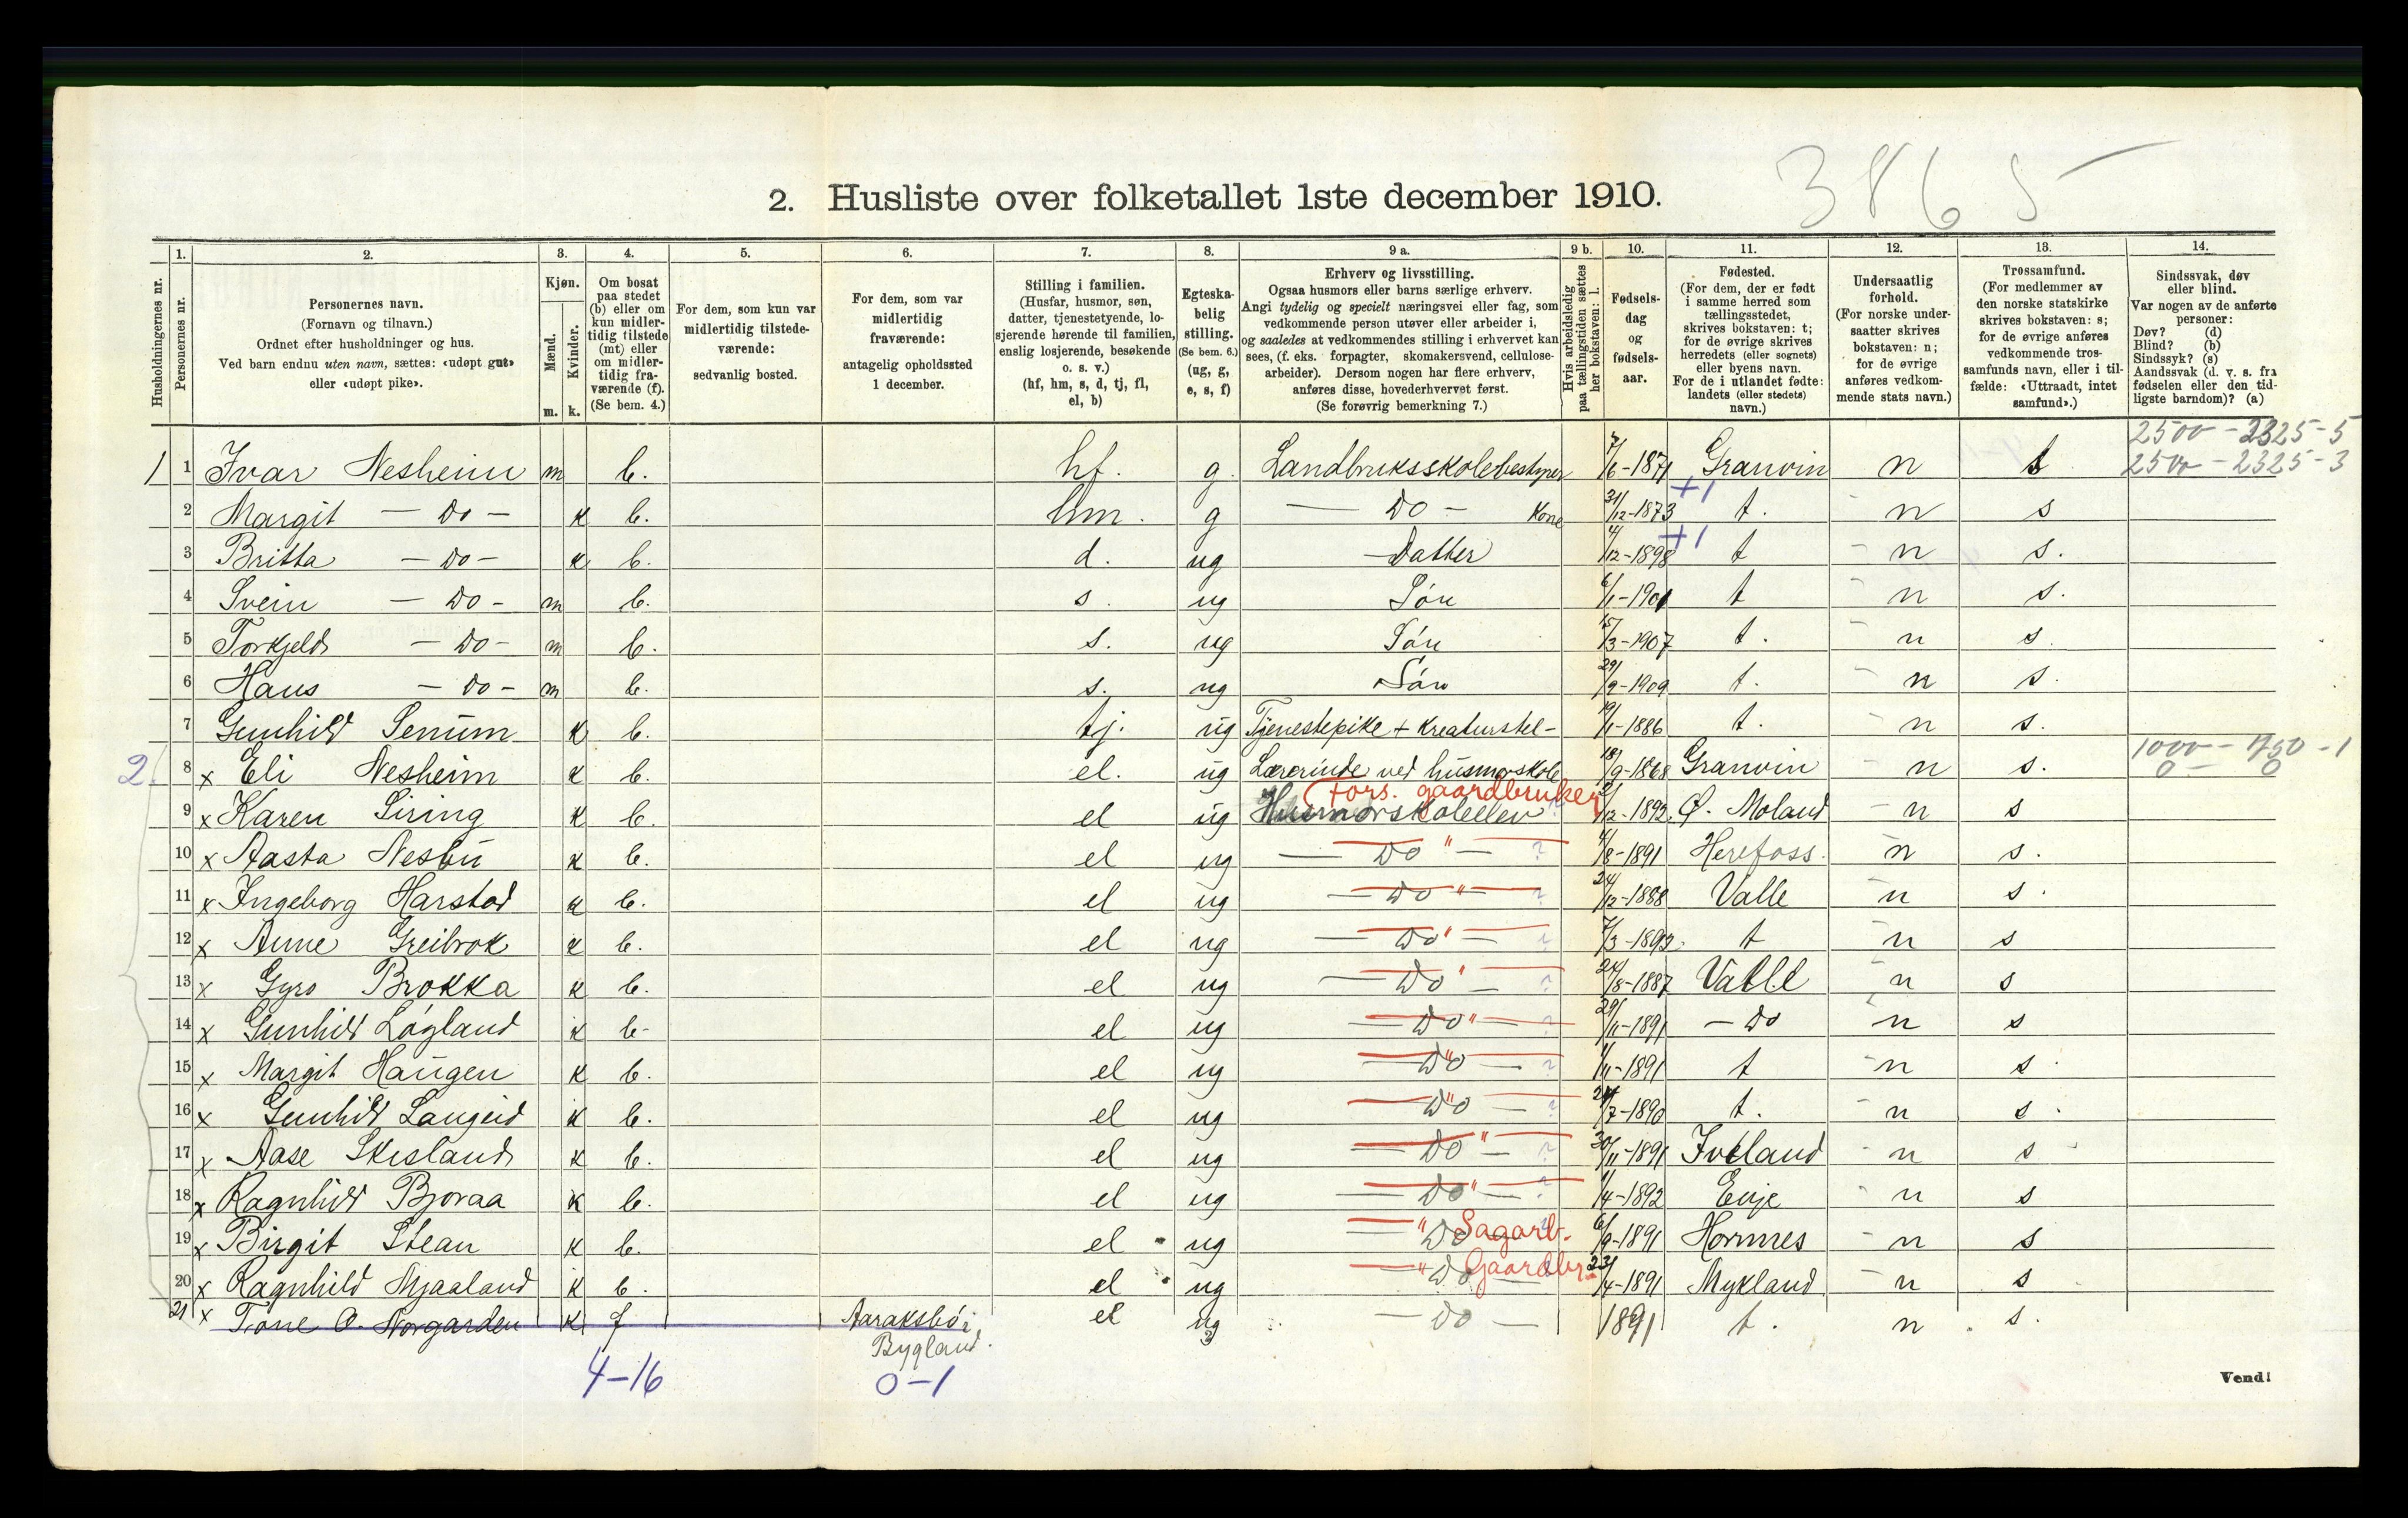 3865
2. Husliste over folketallet 1ste december 1910.
Husholdningernes nr.
1.
Personernes nr.
2.
Personernes navn.
(Fornavn og tilnavn.)
Ordnet efter husholdninger og hus.
Ved barn endnu uten navn, sættes: «udøpt gut»
eller «udøpt pike».
3.
Kjøn.
Mænd.
Kvinder.
m. k.
4.
Om bosat
paa stedet
(b) eller om
kun midler-
tidig tilstede
(mt) eller
om midler-
tidig fra-
værende (f).
(Se bem. 4.)
5.
For dem, som kun var
midlertidig tilstede-
værende:
sedvanlig bosted.
6.
For dem, som var
midlertidig
fraværende:
antagelig opholdssted
1 december.
7.
Stilling i familien.
(Husfar, husmor, søn,
datter, tjenestetyende, lo-
sjerende hørende til familien,
enslig losjerende, besøkende
o. s. v.)
(hf, hm, s, d, tj, fl,
el, b)
8.
Egteska-
belig
stilling.
(Se bem. 6.)
(ug, g,
e, s, f)
9 a.
Erhverv og livsstilling.
Ogsaa husmors eller barns særlige erhverv.
Angi tydelig og specielt næringsvei eller fag, som
vedkommende person utøver eller arbeider i,
og saaledes at vedkommendes stilling i erhvervet kan
sees, (f. eks. forpagter, skomakersvend, cellulose-
arbeider). Dersom nogen har flere erhverv,
anføres disse, hovederhvervet først.
(Se forøvrig bemerkning 7.)
9 b.
Hvis arbeidsledig
paa tællingstiden sættes
her bokstaven: l.
10.
Fødsels-
dag
og
fødsels-
aar.
11.
Fødested.
(For dem, der er født
i samme herred som
tællingsstedet,
skrives bokstaven: t;
for de øvrige skrives
herredets (eller sognets)
eller byens navn.
For de i utlandet fødte:
landets (eller stedets)
navn.)
12.
Undersaatlig
forhold.
(For norske under-
saatter skrives
bokstaven: n;
for de øvrige
anføres vedkom-
mende stats navn.)
13.
Trossamfund.
(For medlemmer av
den norske statskirke
skrives bokstaven: s;
for de øvrige anføres
vedkommende tros-
samfunds navn, eller i til-
fælde: «Uttraadt, intet
samfund».)
14.
Sindssvak, døv
eller blind.
Var nogen av de anførte
personer:
Døv? (d)
Blind? (b)
Sindssyk? (s)
Aandssvak (d. v. s. fra
fødselen eller den tid-
ligste barndom)? (a)
2500 - 2325 - 5
1 1 Ivar Nesheim m b. hf. g. Landbruksskolebestyrer 7/6-1871 Granvin n s 2500 - 2325 - 3
+1
2 Margit - Do - k b. hm. g - Do - Kone 31/12-1873 t. n s
+1
3 Britta - Do - k b. d. ug Datter 4/12-1898 t n s.
4 Svein - Do - m b. s. ug Søn 6/1-1901 t n s.
5 Torkjeld - Do - m b. s. ug Søn 15/3-1907 t. n s.
6 Hans - Do - m b. s. ug Søn 29/9-1909 t. n s.
7 Gunhild Senum k b. tj. ug Tjenestepike + Kreaturstel- 19/1-1886 t. n s.
1000 - 750 - 1
2. 8 x Eli Nesheim k b. el. ug Lærerinde ved husmorskole 18/9-1868 Granvin n s. 0 - 0
Fors. gaardbruker
9 x Karen Siring k b. el ug Husmorskoleelev /12-1892. Ø. Moland n s
10 x Aasta Nesbu k b. el ug - Do " - ? 4/8-1891 Herefoss. n s.
11 x Ingeborg Harstad k b. el ug - Do " ? 24/12-1888 Valle n s.
12 x Anne Greibrok k b. el ug - Do " - ? 7/3-1893. t n s
13 x Gyro Brokka k b. el ug - Do " - ? 24/8-1887 Valle n s
14 x Gunhild Løgland k b- el ug - Do " - ? 29/11-1891 - Do n s
15 x Margit Haugen k b. el ug - Do " - ? 1/11-1891 t n s.
16 x Gunhild Langeid k b. el ug - Do " - ? 24/7-1890 t. n s.
17 x Aase Skisland k b. el ug - Do " - ? 30/11-1891 Iveland n s
18 x Ragnhild Bjoraa k b. el ug - Do " - ? 1/4-1892 Evje n s
19 x Birgit Stean k b. el ug - " Do Sagarb. 6/9-1891 Hornnes n s
20 x Ragnhild Mjaaland k b. el ug - " Do Gaardbr. 23/4-1891 Mykland n s
21 x Tone O. Norgarden k f Aaraksbø i el ug - Do - 1891 t. n s.
Bygland.
?
4-16 0-1
Vend!